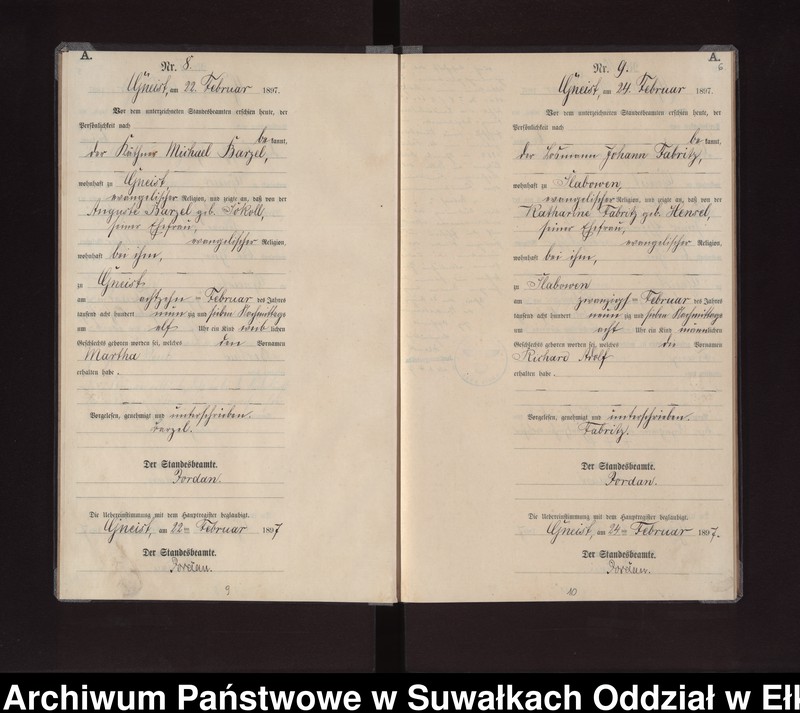 A.
Nr. 8.
Gneist, am 22. Februar 1897.
Vor dem unterzeichneten Standesbeamten erschien heute, der
Persönlichkeit nach
bekannt,
der Käthner Michael Barzel,
wohnhaft zu Gneist,
evangelischer Religion, und zeigte an, daß von der
Auguste Barzel geb. Sokoll,
seiner Ehefrau,
evangelischer Religion,
wohnhaft bei ihm,
zu Gneist
am achtzehnten Februar des Jahres
tausend acht hundert neunzig und sieben Nachmittags
um elf Uhr ein Kind weiblichen
Geschlechts geboren worden sei, welches den Vornamen
Martha
erhalten habe.
Vorgelesen, genehmigt und unterschrieben.
Barzel.
Der Standesbeamte.
Jordan.
Die Uebereinstimmung mit dem Hauptregister beglaubigt.
Gneist, am 22ten Februar 1897
Der Standesbeamte.
Jordan.
9
A.
6
Nr. 9.
Gneist, am 24. Februar 1897.
Vor dem unterzeichneten Standesbeamten erschien heute, der
Persönlichkeit nach
bekannt,
der Losmann Johann Fabritz,
wohnhaft zu Slabowen,
evangelischer Religion, und zeigte an, daß von der
Katharine Fabritz geb. Hensel,
seiner Ehefrau,
evangelischer Religion,
wohnhaft bei ihm,
zu Slabowen
am zwanzigsten Februar des Jahres
tausend acht hundert neunzig und sieben Nachmittags
um acht Uhr ein Kind männlichen
Geschlechts geboren worden sei, welches die Vornamen
Richard Adolf
erhalten habe.
Vorgelesen, genehmigt und unterschrieben.
Fabritz.
Der Standesbeamte.
Jordan.
Die Uebereinstimmung mit dem Hauptregister beglaubigt.
Gneist, am 24ten Februar 1897.
Der Standesbeamte.
Jordan.
10
Archiwum Państwowe w Suwałkach Oddział w Ełk